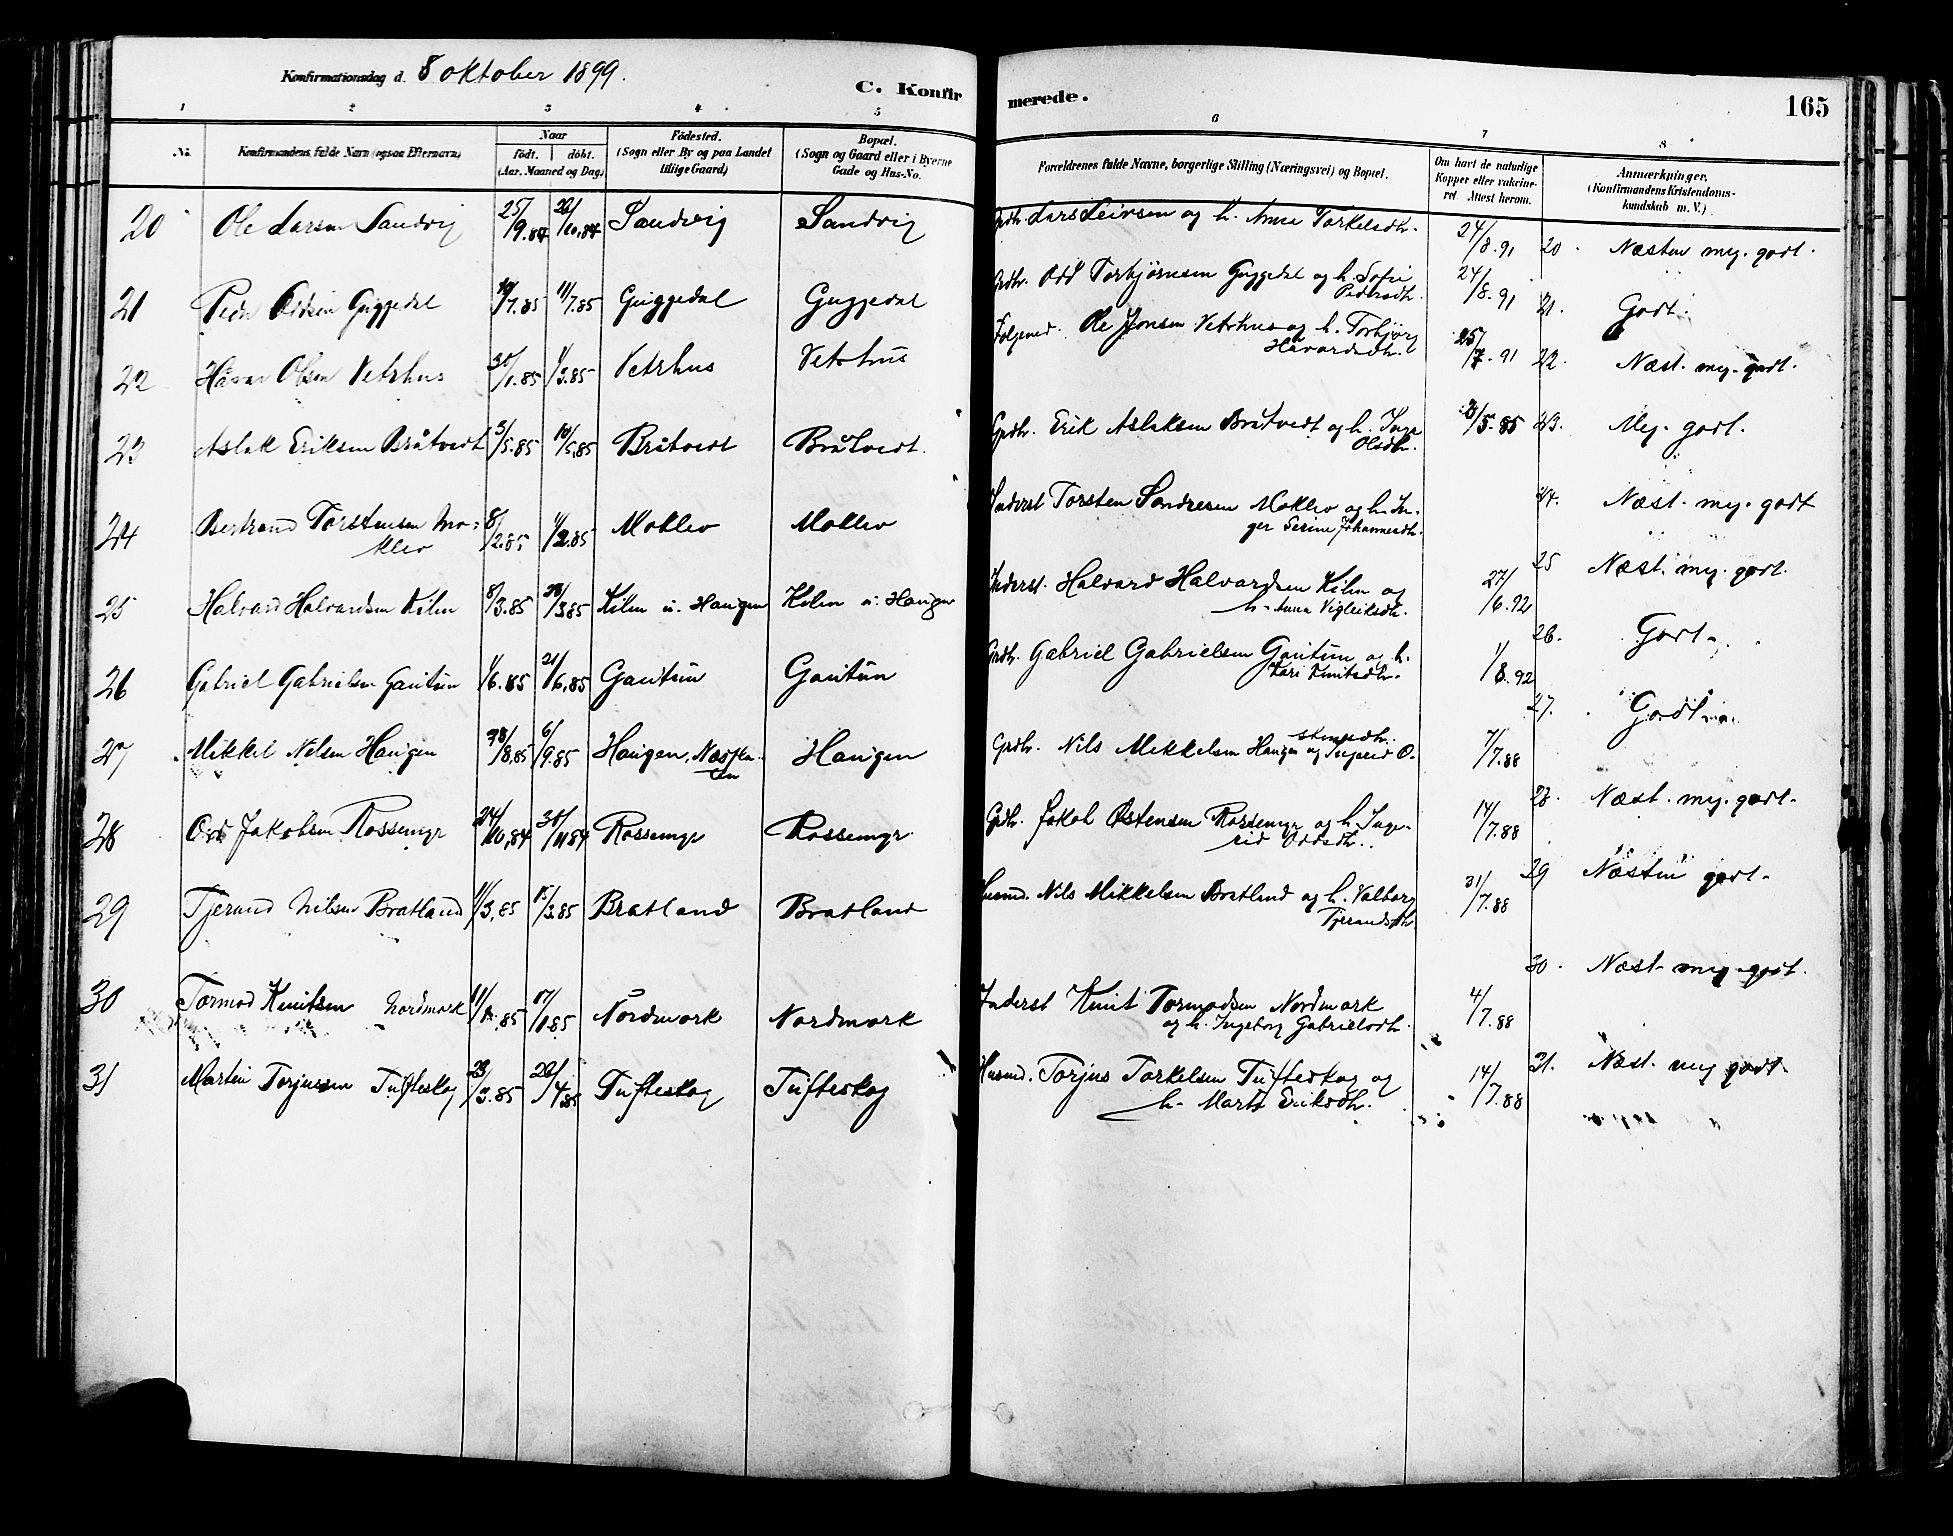 Konfirmationsdag d. 8 oktober 1899.
C. Konfirmerede.
165
1 2 3 4 5 6 7 8
No. Konfirmandens fulde Navn (ogsaa Efternavn) Naar født. døbt. (Aar, Maaned og Dag) Fødested. (Sogn eller By og paa Landet tillige Gaard) Bopæl. (Sogn og Gaard eller i Byerne Gade og Hus-No. Forældrenes fulde Navne, borgerlige Stilling (Næringsvei) og Bopæl. Om havt de naturlige Kopper eller vakcineret. Attest herom. Anmærkninger. (Konfirmandens Kristendomskundskab m.V.)
20 Ole Larsen Sandvig 25/9.84 26/10.84 Sandvig Sandvig Grdbr. Lars Leivsen og h. Anna Torkelsdtr. 24/8.91 20. Næsten meg. godt.
21 Peder Oddsen Guggedal 10/7.85 11/7.85 Guggedal Guggedal Grdbr. Odd Torbjørnsen Guggedal og h. Sofie Pedersdtr. 24/8.91 21. Godt.
22 Håvar Olsen Vetrhus 30/1.85 1/3.85 Vetrhus Vetrhus Følgemd. Ole Jonsen Vetrhus og h. Torbjørg Håvardsdtr. 25/7.91 22. Næst. meg. godt.
23 Aslak Eriksen Bråtvedt 3/5.85 10/5.85 Bråtvedt Bråtvedt. Grdbr. Erik Aslaksen Bråtvedt og h. Inga Olsdtr. 3/5.85 23. Meg. godt.
24 Bertrand Torstensen Moklev 8/2.85 1/2.85 Moklev Moklev Inderst Torsten Sondresen Moklev og h. Inger Serine Johannesdtr. 24. Næst. meg. godt
25 Halvard Halvardsen Kilen 8/3.85 28/3.85 Kilen u. Haugen Kilen u. Haugen Inderst. Halvard Halvardsen Kilen og h. Anna Vigleiksdtr. 27/6.92 25 Næst. meg. godt.
26 Gabriel Gabrielsen Gautun 1/6.85 21/6.85 Gautun Gautun Grdbr. Gabriel Gabrielsen Gautun og h. Kari Knutsdtr. 1/8.92 26. Godt.
27 Mikkel Nilsen Haugen 28/8.85 6/9.85 Haugen, Næsflaten Haugen Grdbr. Nils Mikkelsen Haugen og Ingerid Østensdtr. 7/7.88 27. Godt.
28 Odd Jakobsen Rossemyr 24/10.84 30/11.84 Rossemyr Rossemyr. Grdbr. Jakob Østensen Rossemyr og h. Ingerid Oddsdtr. 14/7.88 28. Næst. meg. godt.
29 Tjerand Nilsen Bratland 1/3.85 15/3.85 Bratland Bratland Husmd. Nils Mikkelsen Bratland og h. Valborg Tjerandsdtr. 31/7.88 29 Næsten godt.
30 Tormod Knutsen Nordmork 11/1.85 17/1.85 Nordmork Nordmork Inderst Knut Tormodsen Nordmork og h. Ingeborg Gabrielsdtr. 4/7.88 30. Næst. meg. godt.
31 Martin Torjussen Tufteskog 23/3.85 26/4.85 Tufteskog Tufteskog Husmd. Torjus Torkelsen Tufteskog og h. Marta Eriksdtr. 14/7.88 31. Næst. meg godt.